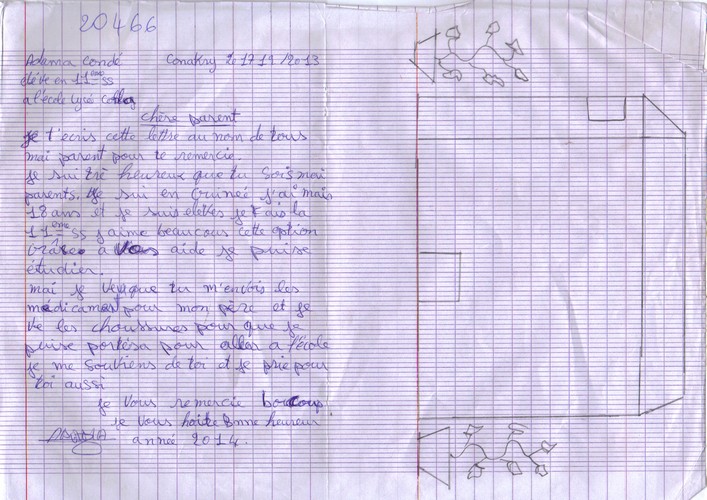 20466
Adama Condé Conakry le 17 19 /2013
élève en 11ème ss
a l'école lycée
chère parent
je t'ecris cette lettre au nom de tous
mai parent pour te remercie.
je sui trè heureux que tu sois mai
parents. je sui en Guineé j'ai mais
18 ans et je suis élèves je fais la
11ème ss j'aime beaucous cette option
Grâce a vous aide je puise
étudier.
mai je veu que tu m'envois les
médicamant pour mon père et je
ve les choussures pour que je
puise portésa pour aller a l'école
je me souviens de toi et je prie pour
toi aussi
je vous remercie boucoup.
je vous haite Bonne heureux
année 2014.